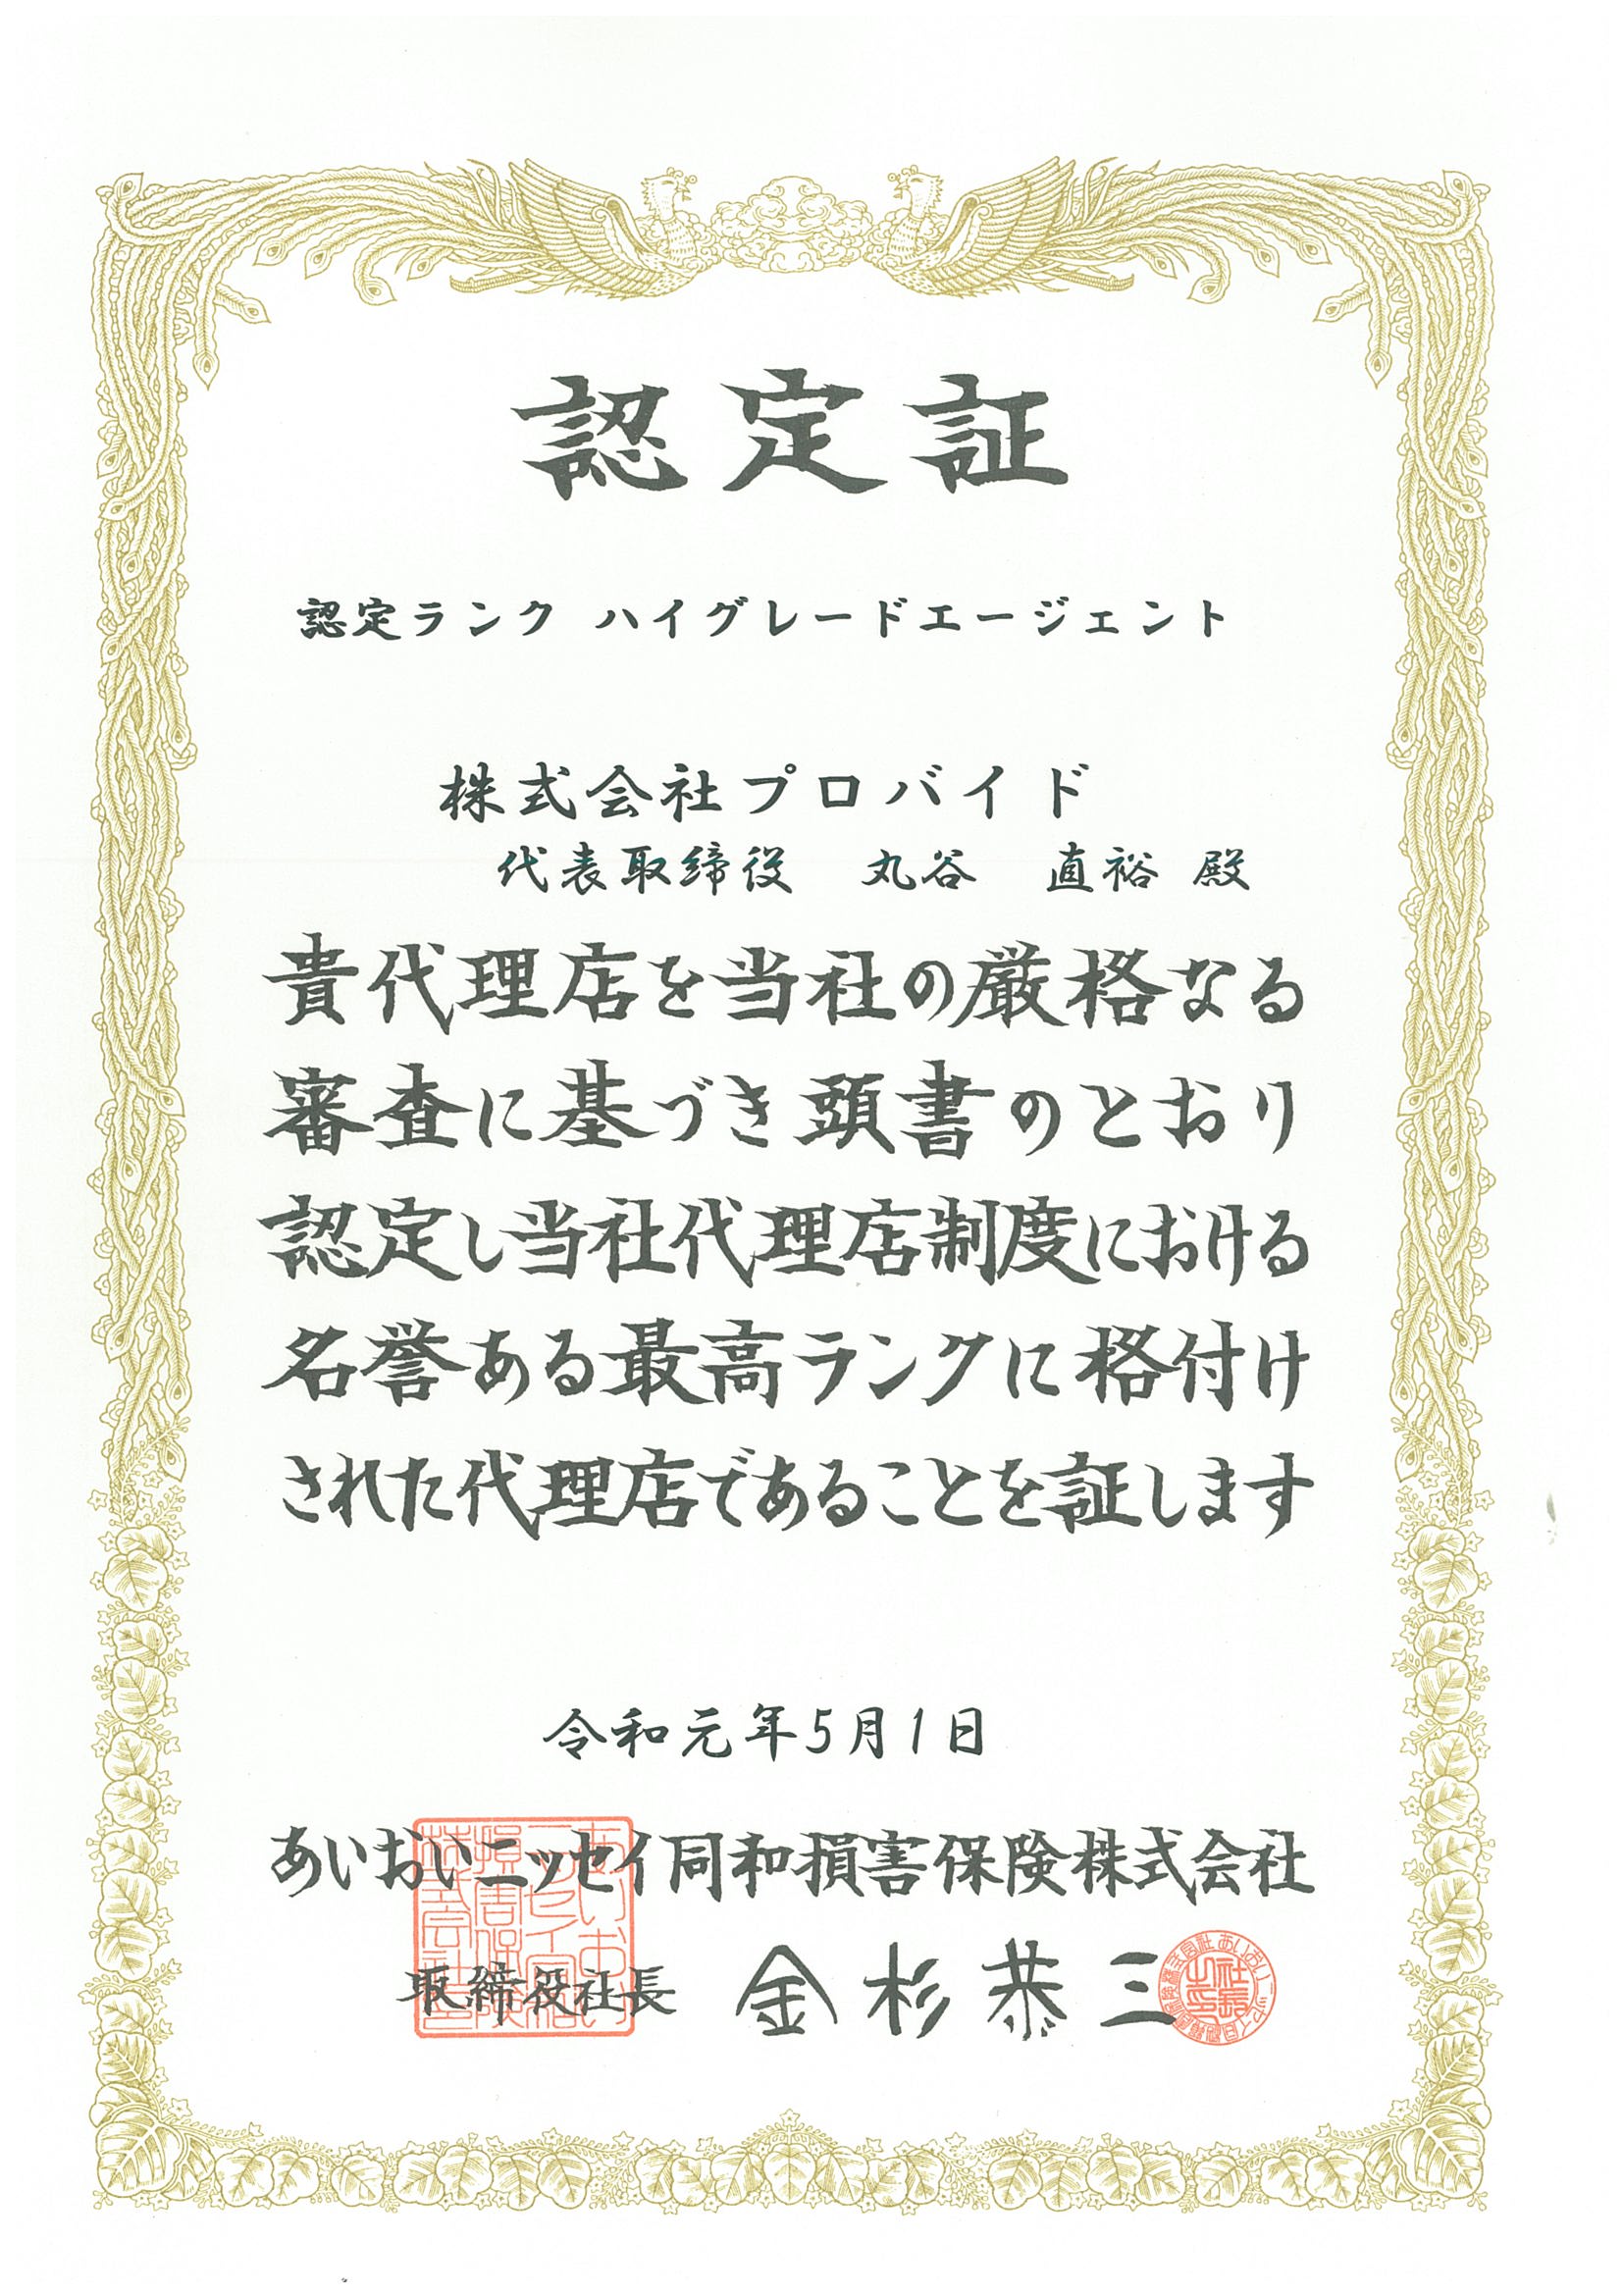 認定証
認定ランク ハイグレードエージェント
株式会社プロバイド
代表取締役 丸谷 直裕 殿
貴代理店を当社の厳格なる
審査に基づき頭書のとおり
認定し当社代理店制度における
名誉ある最高ランクに格付け
された代理店であることを証します
令和元年5月1日
あいおいニッセイ同和損害保険株式会社
取締役社長 金杉恭三